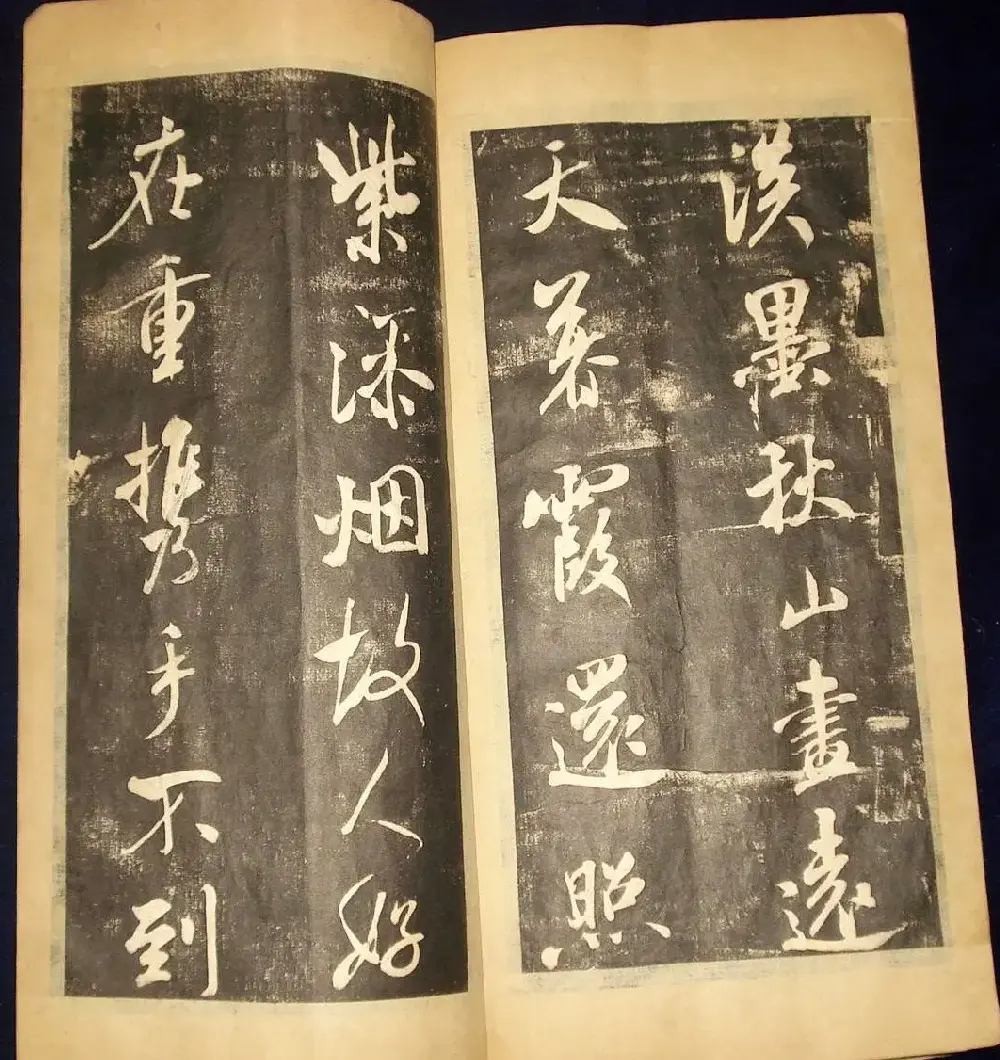 淡墨秋山畫遠
天暮霞還照
紫添烟故人好
在重携手不到